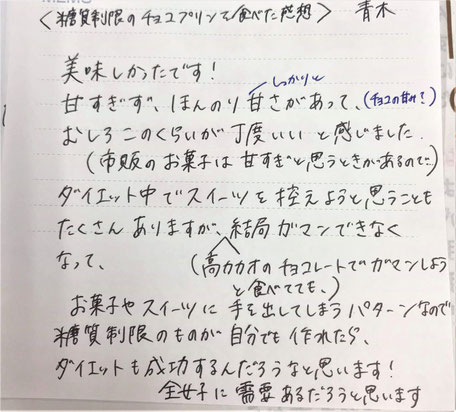 〈糖質制限のチョコプリンを食べた感想〉 青木
美味しかったです！
しっかりと
甘すぎず、ほんのり甘さがあって、(チョコの甘み?)
むしろこのくらいが丁度いいと感じました。
(市販のお菓子は甘すぎと思うときがあるので)
ダイエット中でスイーツを控えようと思うことも
たくさんありますが、結局ガマンできなく
なって、
(高カカオのチョコレートでガマンしよう
と食べてても、)
お菓子やスイーツに手を出してしまうパターンなので
糖質制限のものが自分でも作れたら、
ダイエットも成功するんだろうなと思います！
全女子に需要あるだろうと思います